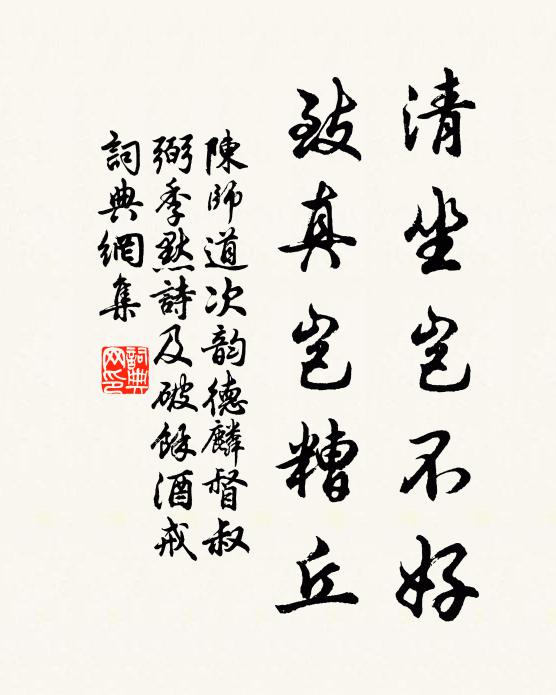 清坐岂不好
致真岂糟丘
陳師道次韵德麟督叔
弼季默詩及破餘酒戒
詞典網集
詞典网印